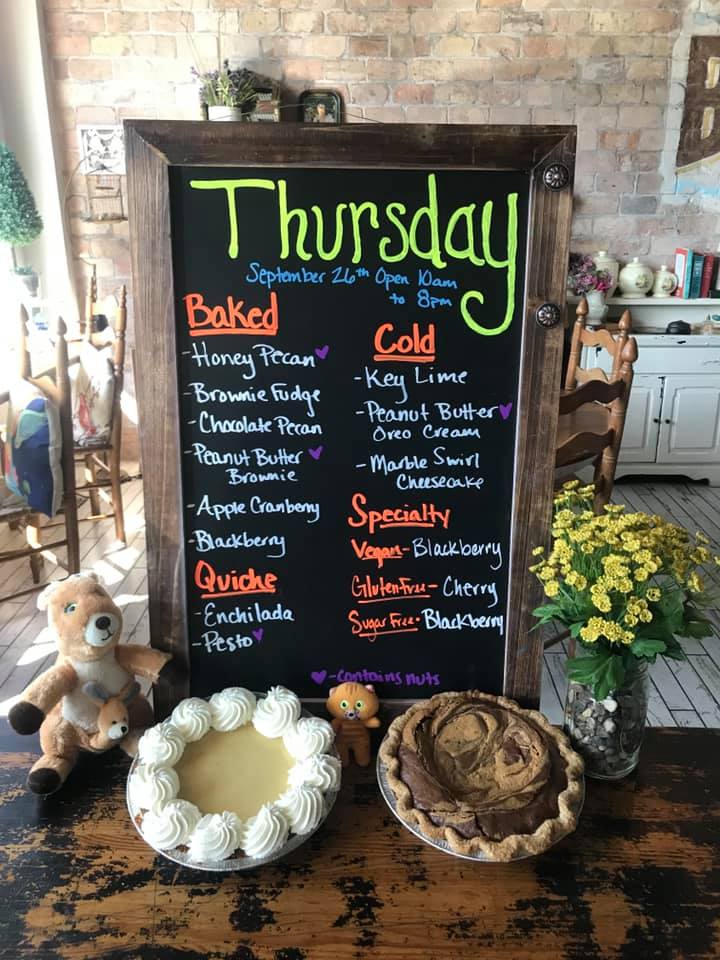 Thursday
September 26th Open 10am
to 8pm
Baked
- Honey Pecan
- Brownie Fudge
- Chocolate Pecan
- Peanut Butter
Brownie
- Apple Cranberry
- Blackberry
Quiche
- Enchilada
- Pesto
Cold
- Key Lime
- Peanut Butter
Oreo Cream
- Marble Swirl
Cheesecake
Specialty
Vegan - Blackberry
Gluten Free - Cherry
Sugar Free - Blackberry
- contains nuts